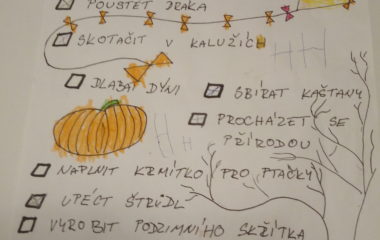 POUSTĚT DRAKA
SKOTAČIT V KALUŽÍCH
DLABAT DÝNI
SBÍRAT KAŠTANY
PROCHÁZET SE
PŘÍRODOU
NAPLNIT KRMÍTKO PRO PTÁČKY
UPÉCT ŠTRŮDL
VYROBIT PODZIMNÍHO SKŘÍTKA